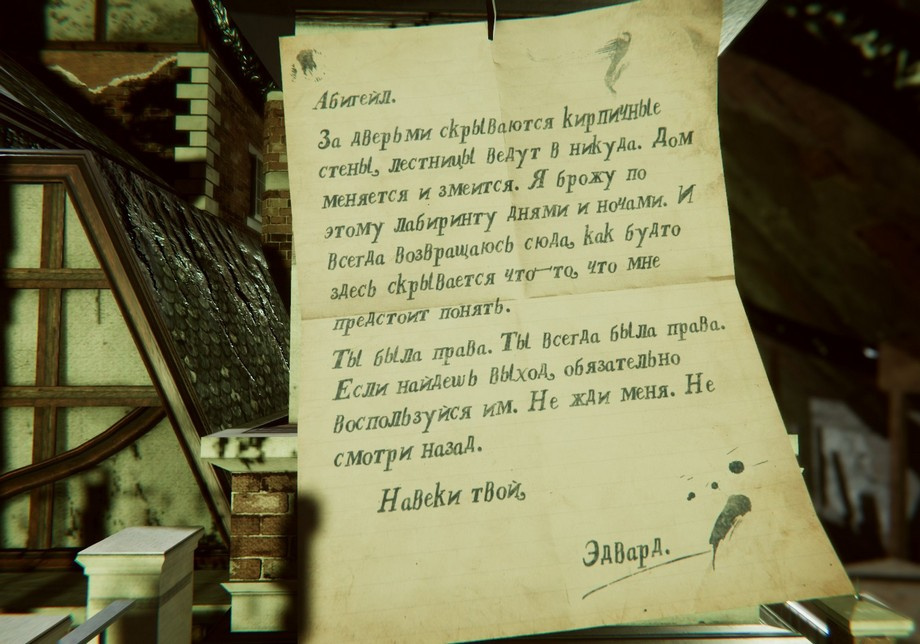 Абигейл.
За дверьми скрываются кирпичные
стены, лестницы ведут в никуда. Дом
меняется и змеится. Я брожу по
этому лабиринту днями и ночами. И
всегда возвращаюсь сюда, как будто
здесь скрывается что-то, что мне
предстоит понять.
Ты была права. Ты всегда была права.
Если найдешь выход, обязательно
воспользуйся им. Не жди меня. Не
смотри назад.
Навеки твой,
Эдвард.